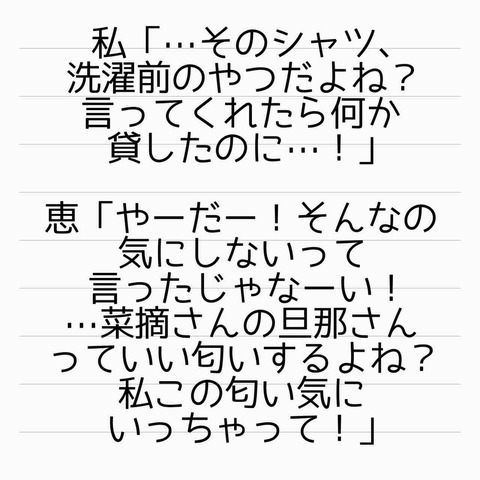 私「…そのシャツ、
洗濯前のやつだよね？
言ってくれたら何か
貸したのに…！」
恵「やーだー！そんなの
気にしないって
言ったじゃなーい！
…菜摘さんの旦那さん
っていい匂いするよね？
私この匂い気に
いっちゃって！」